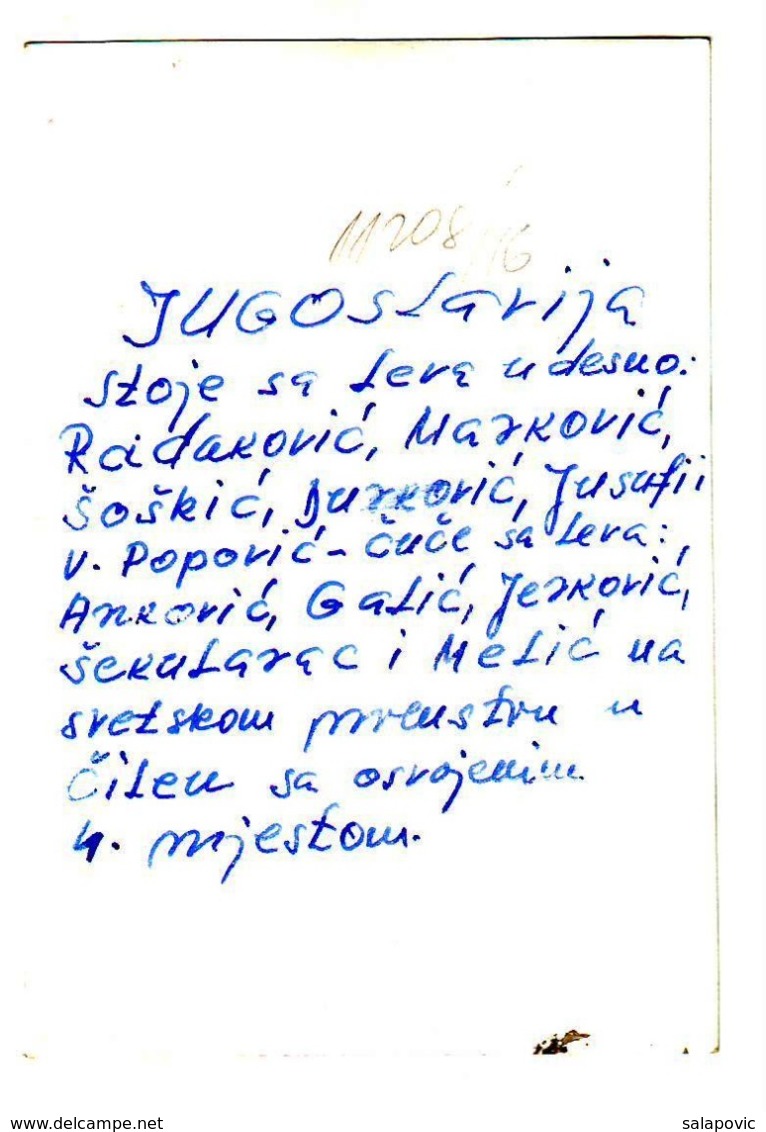 11208/16
JUGOSlavija
stoje sa leva udesno:
Radaković, Marković,
Šoškić, Durković, Jusufii
v. Popović - čuče sa leva:
Anković, Galić, Jerković,
Šekularac i Melić na
svetskom prvenstvu u
Čileu sa osvojenim
4. mjestom.
www.delcampe.net
salapovic